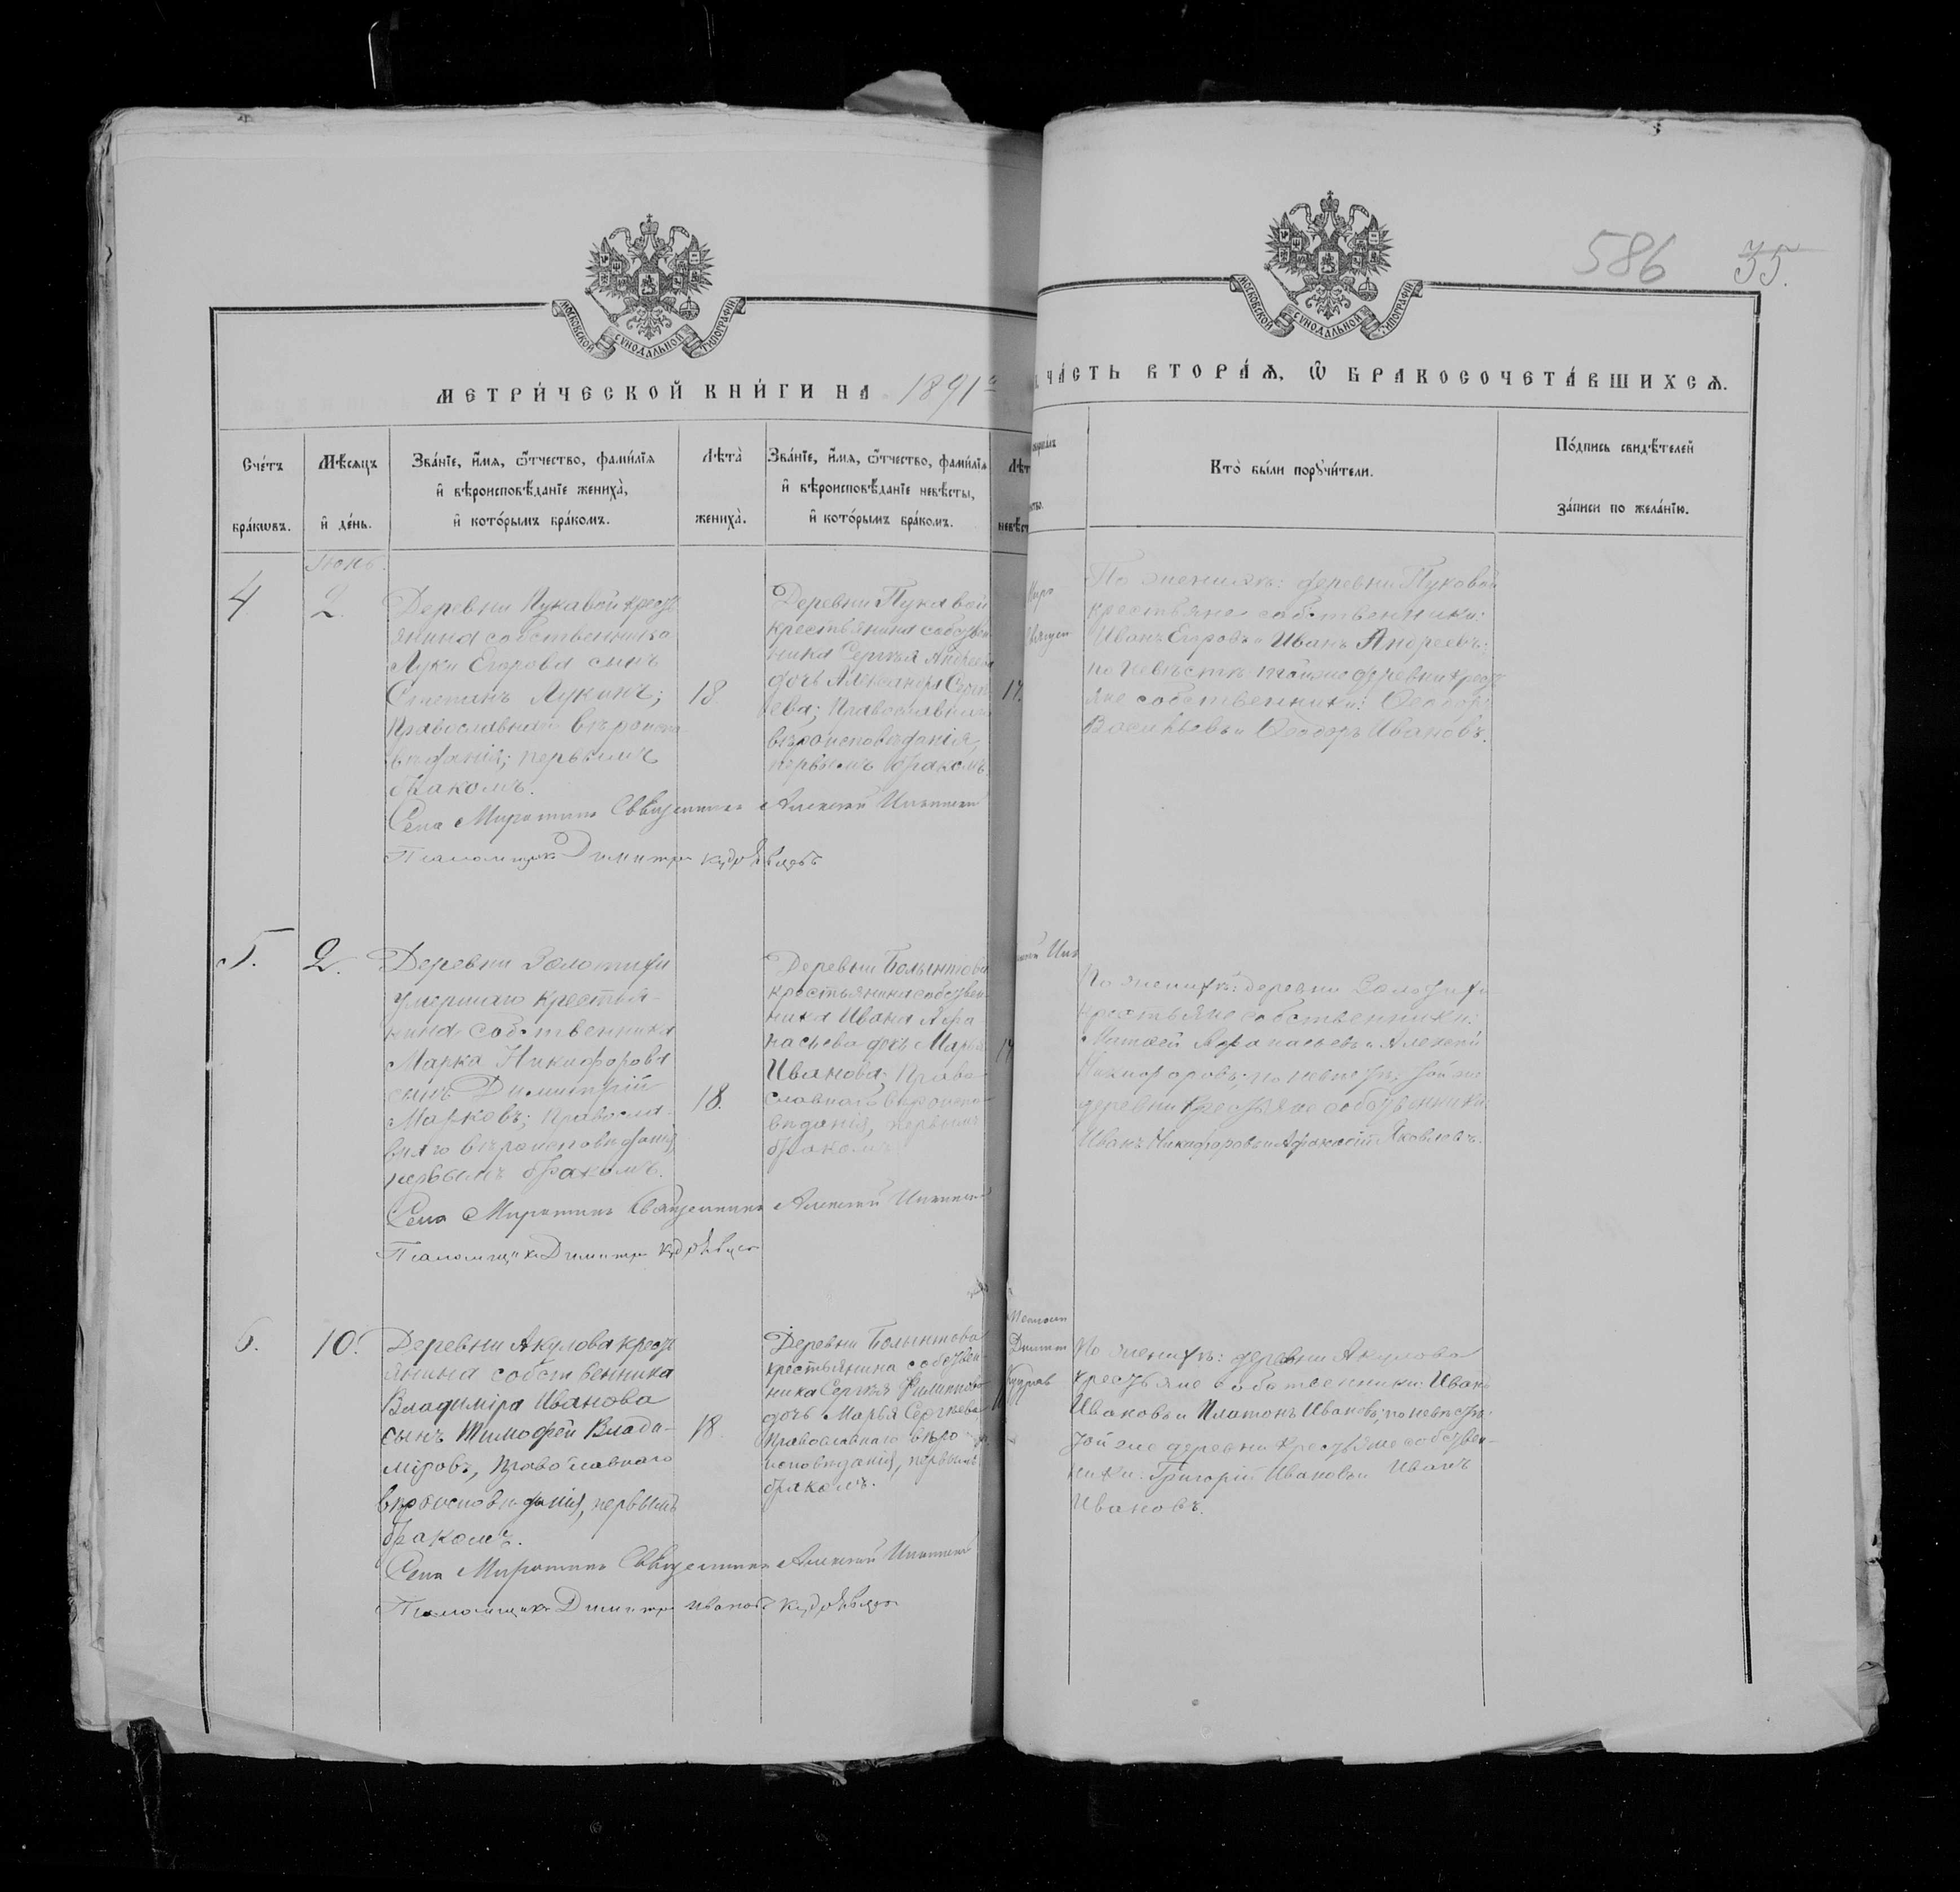 586 35.
МОСКОВСКОЙ СѴНОДАЛЬНОЙ ТИПОГРАФІИ
МОСКОВСКОЙ СѴНОДАЛЬНОЙ ТИПОГРАФІИ
МЕТРИ́ЧЕСКОЙ КНИ́ГИ НА 1891
ЧА́СТЬ ВТОРА́Ѧ, Ѿ БРАКОСОЧЕТА́ВШИХСѦ.
Сче́тъ бра́кѡвъ.
Мѣ́сѧцъ и҆ де́нь.
Зва́нїе, и҆́мѧ, ѻ҆́тчество, фами́лїѧ и҆ вѣроисповѣ́данїе жениха̀, и҆ кото́рымъ бра́комъ.
Лѣта̀ жениха̀.
Зва́нїе, и҆́мѧ, ѻ҆́тчество, фами́лїѧ и҆ вѣроисповѣ́данїе невѣ́сты, и҆ кото́рымъ бра́комъ.
Кто̀ бы́ли порꙋчи́тели.
По́дпись свидѣ́телей за́писи по жела́нїю.
Іюнь
4. 2.
Деревни Пукавой крест
янина собственника
Луки Егорова сынъ
Степанъ Лукинъ;
Православнаго вѣроиспо
вѣданія; первымъ
бракомъ.
18.
Деревни Пукавой
крестьянина собствен
ника Сергѣя Андреева
дочь Александра Серг
ева; Православнаго
вѣроисповѣданія,
первымъ бракомъ.
17.
По женихѣ: деревни Пуковой
крестьяне собственники:
Иванъ Егоровъ и Иванъ Андреевъ;
по невѣстѣ: той же деревни крест
яне собственники: Ѳеодоръ
Васильевъ и Ѳеодоръ Ивановъ.
Села Священникъ Алексѣй
Псаломщикъ Димитрій Кудрявцевъ
5. 2.
Деревни Золотихи
умершаго крестья-
нина собственника
Марка Никифорова
сынъ Димитрій
Марковъ; Правосла-
внаго вѣроисповѣданія,
первымъ бракомъ.
18.
Деревни
крестьянина собствен
ника Ивана Афа
насьева дочь Марья
Иванова; Право
славнаго вѣроиспо
вѣданія, первымъ
бракомъ.
По женихѣ: деревни Золотихи
крестьяне собственники:
Матвей Афанасьевъ и Алексѣй
Никифоровъ; по невѣстѣ: той же
деревни крестьяне собственники
Иванъ Никифоровъ и Афанасій Яковлевъ.
Села Священникъ Алексѣй
Псаломщикъ Димитрій Кудрявцевъ
6. 10.
Деревни Акулова крест
янина собственника
Владиміра Иванова
сынъ Тимофей Влади-
міровъ, Православнаго
вѣроисповѣданія, первымъ
бракомъ.
18.
Деревни
крестьянина собствен
ника Сергѣя Филиппова
дочь Марья Сергѣева
Православнаго вѣро
исповѣданія, первымъ
бракомъ.
По женихѣ: деревни Акулова
крестьяне собственники: Иванъ
Ивановъ и Платонъ Ивановъ; по невѣстѣ:
той же деревни крестьяне собствен-
ники: Григорій Ивановъ и Иванъ
Ивановъ.
Села Священникъ Алексѣй
Псаломщикъ Димитрій Ивановъ Кудрявцевъ